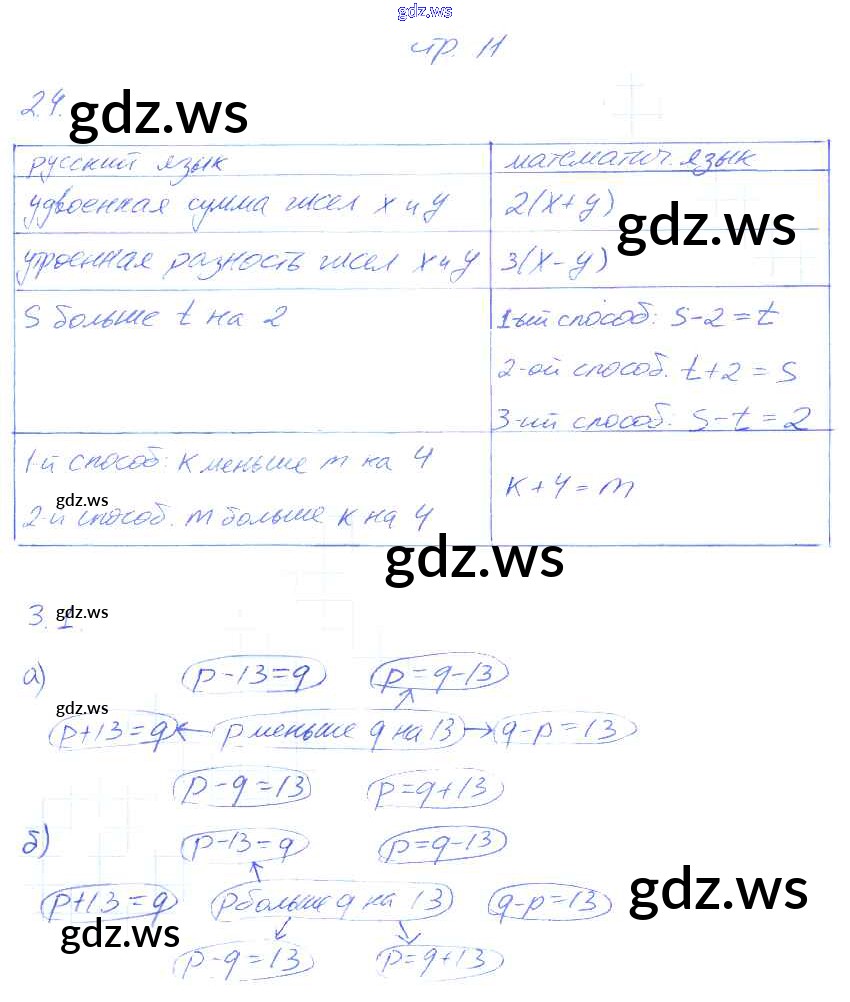 gdz.ws
стр. 11
2.4. gdz.ws
русский язык математич. язык
удвоенная сумма чисел x и y 2(x+y)
gdz.ws
утроенная разность чисел x и y 3(x-y)
S больше t на 2 1-ый способ: S-2=t
2-ой способ. t+2=S
3-ий способ: S-t=2
1-й способ: K меньше m на 4
K+4=m
gdz.ws
2-й способ. m больше K на 4
gdz.ws
3.1. gdz.ws
а) p-13=q p=q-13
gdz.ws
p+13=q p меньше q на 13 q-p=13
p-q=13 p=q+13
б) p-13=q p=q-13
p+13=q p больше q на 13 q-p=13 gdz.ws
gdz.ws
p-q=13 p=q+13